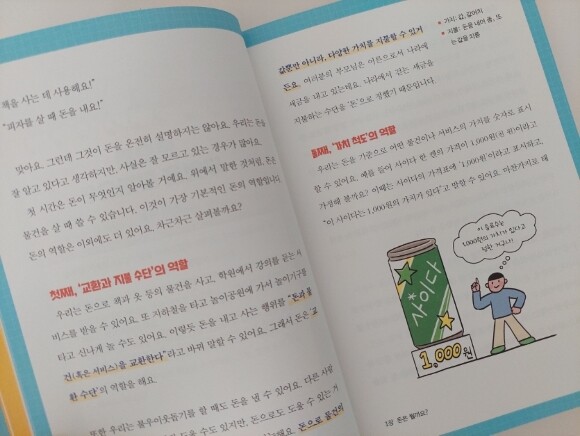 책을 사는 데 사용해요!”
“피자를 살 때 돈을 내요!”
맞아요. 그런데 그것이 돈을 온전히 설명하지는 않아요. 우리는 돈을
잘 알고 있다고 생각하지만, 사실은 잘 모르고 있는 경우가 많아요.
첫 시간은 돈이 무엇인지 알아볼 거예요. 위에서 말한 것처럼, 돈은
물건을 살 때 쓸 수 있습니다. 이것이 가장 기본적인 돈의 역할입니다
돈의 역할은 이외에도 더 있어요. 차근차근 살펴볼까요?
첫째, ‘교환과 지불 수단’의 역할
우리는 돈으로 책과 옷 등의 물건을 사고, 학원에서 강의를 듣는 서
비스를 받을 수 있어요. 또 지하철을 타고 놀이공원에 가서 놀이기구를
타고 신나게 놀 수도 있어요. 이렇듯 돈을 내고 사는 행위를 “돈과 물
건(혹은 서비스)을 교환한다”라고 바꿔 말할 수 있어요. 그래서 돈은 ‘교
환 수단’의 역할을 해요.
또한 우리는 불우이웃돕기를 할 때도 돈을 낼 수 있어요. 다른 사람
수도 있지만, 돈으로도 도울 수 있는 거
돈으로 물건의
값뿐만 아니라, 다양한 가치를 지불할 수 있거
든요. 여러분의 부모님은 어른으로서 나라에
세금을 내고 있는데요. 나라에서 걷는 세금을
지불하는 수단을 ‘돈’으로 정했기 때문입니다.
• 가치: 값, 값어치
• 지불: 돈을 내어 줌. 또
는 값을 치름
둘째, ‘가치 척도’의 역할
우리는 돈을 기준으로 어떤 물건이나 서비스의 가치를 숫자로 표시
할 수 있어요. 예를 들어 사이다 한 캔의 가격이 1,000원(천 원)이라고
가정해 볼까요? 이때는 사이다의 가격표에 ‘1,000원’이라고 표시하고,
“이 사이다는 1,000원의 가치가 있다”고 말할 수 있어요. 마찬가지로 태
이 음료수는
1,000원의 가치가 있다고
정한 거구나!
사이다
1,000원
1장 돈은 뭘까요?